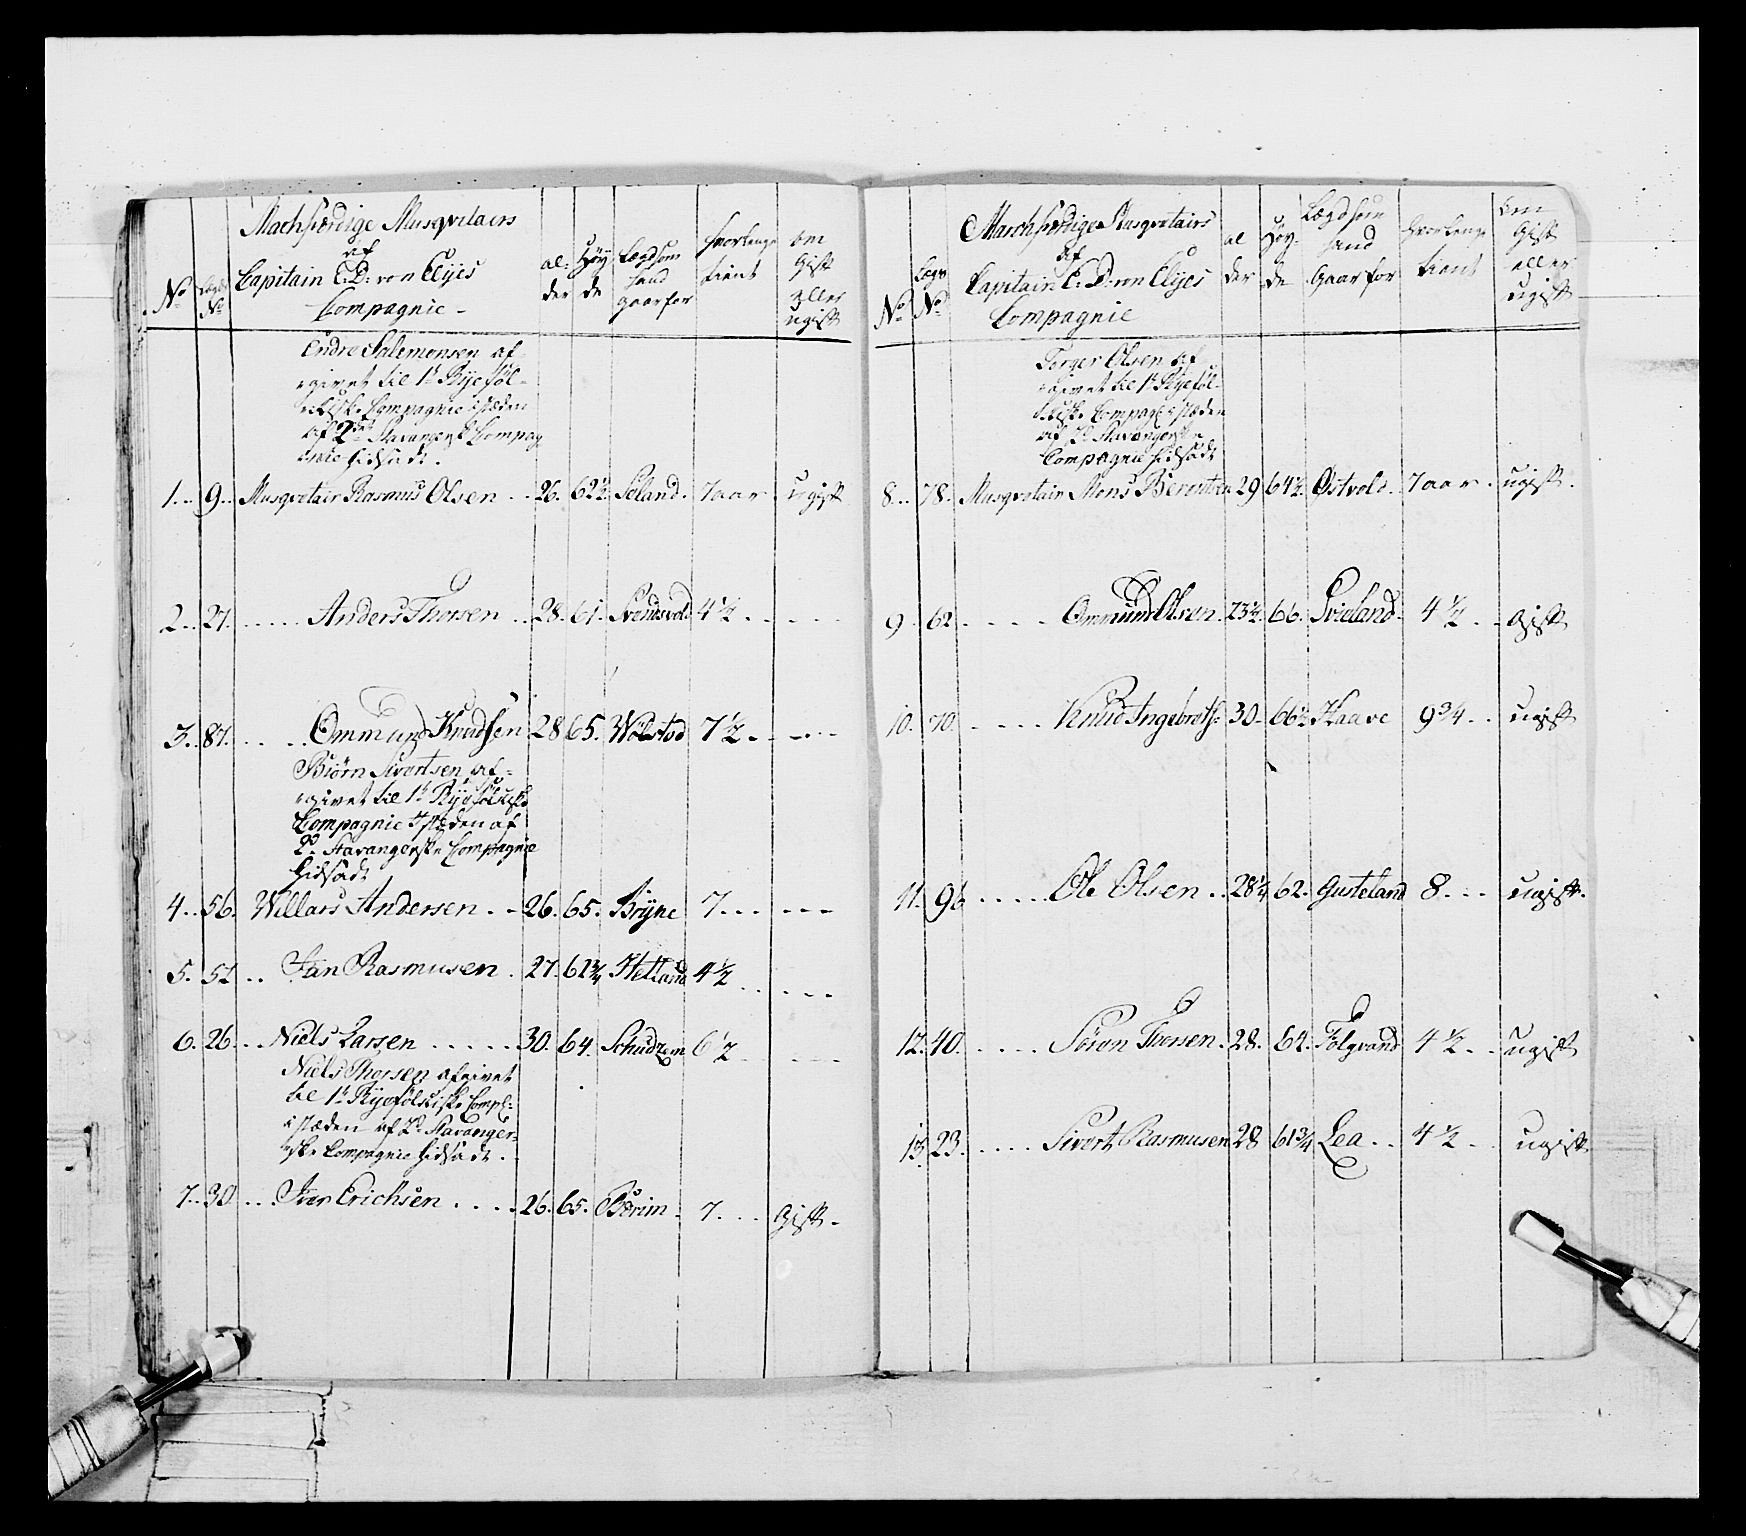 No
Lægds No
Machfærdige Musqvetairs
af
Capitain C: D: von Elyes
Compagnie -
al: der
Høy de
Lægd som hand gaar for
hvorlenge tient
om Gift eller ugift
Endre Salemonsen af-
givet til 1te Ryeføl-
kiske Compagnie i stæden
af 2det Stavangersk Compag
nie hidsadt.
1... 9.. Musqvetair Rasmus Olsen .. 26. 62½ Seland. 7 aar . ugift
2... 27. ..... Anders Thorsen .. 28. 61. Svendsvold 4½ .. ....
3.. 87. .... Ommund Knudsen 28 65. Wolstad 7½ .. ....
Biørn Sivertsen, af-
givet til 1te Ryefølkiske
Compagnie I stæden af
2d Stavangerske Compagnie
hidsadt
4.. 56. Willars Andersen. .. 26. 65. Bryne 7... ...
5. 57 .. Jan Rasmusen . 27. 61¾ Hetland 4½ .. ...
6. 26. .. Niels Larsen ..... 30. 64. 6½ . ...
Niels Thorsen afgivet
til 1te Ryefølkiske Compe:
i stæden af 2d Stavanger-
ske Compagnie hidsadt.
7.. 30 .. Iver Erichsen .... 26. 65. Børim . 7. .. Gift.
No
Lægds No
Marchfærdige Musqvetairs
af
Capitain C: D: von Elyes
Compagnie
al der
Høy- de
Lægd som hand Gaar for
hvorlenge tient
om Gift eller ugift
Torger Olsen af
givet til 1te Ryeføl-
kiske Compage i stæden
af 2d Stavangerske
Compagnie hidsadt
8... 78. Musqvetair Mons Berentsen 29 64½ Ostvold. 7 aar . ugift.
9. 62 .... Ommund Olsen. 23½. 66. Svieland. 4½ .. gift
10. 70. .... Knud Ingebrets: 30. 66½ Haave 9¾ .. ugift
11. 96 ..... Ole Olsen .. 28¼ 62. Gusteland 8... ugift.
12. 40. .... Sören Iversen. 28. 64. Folgvand 4½ .. ugift
13. 23. .... Sivert Rasmusen 28 61¾ Lea .. 4½ .. ugift